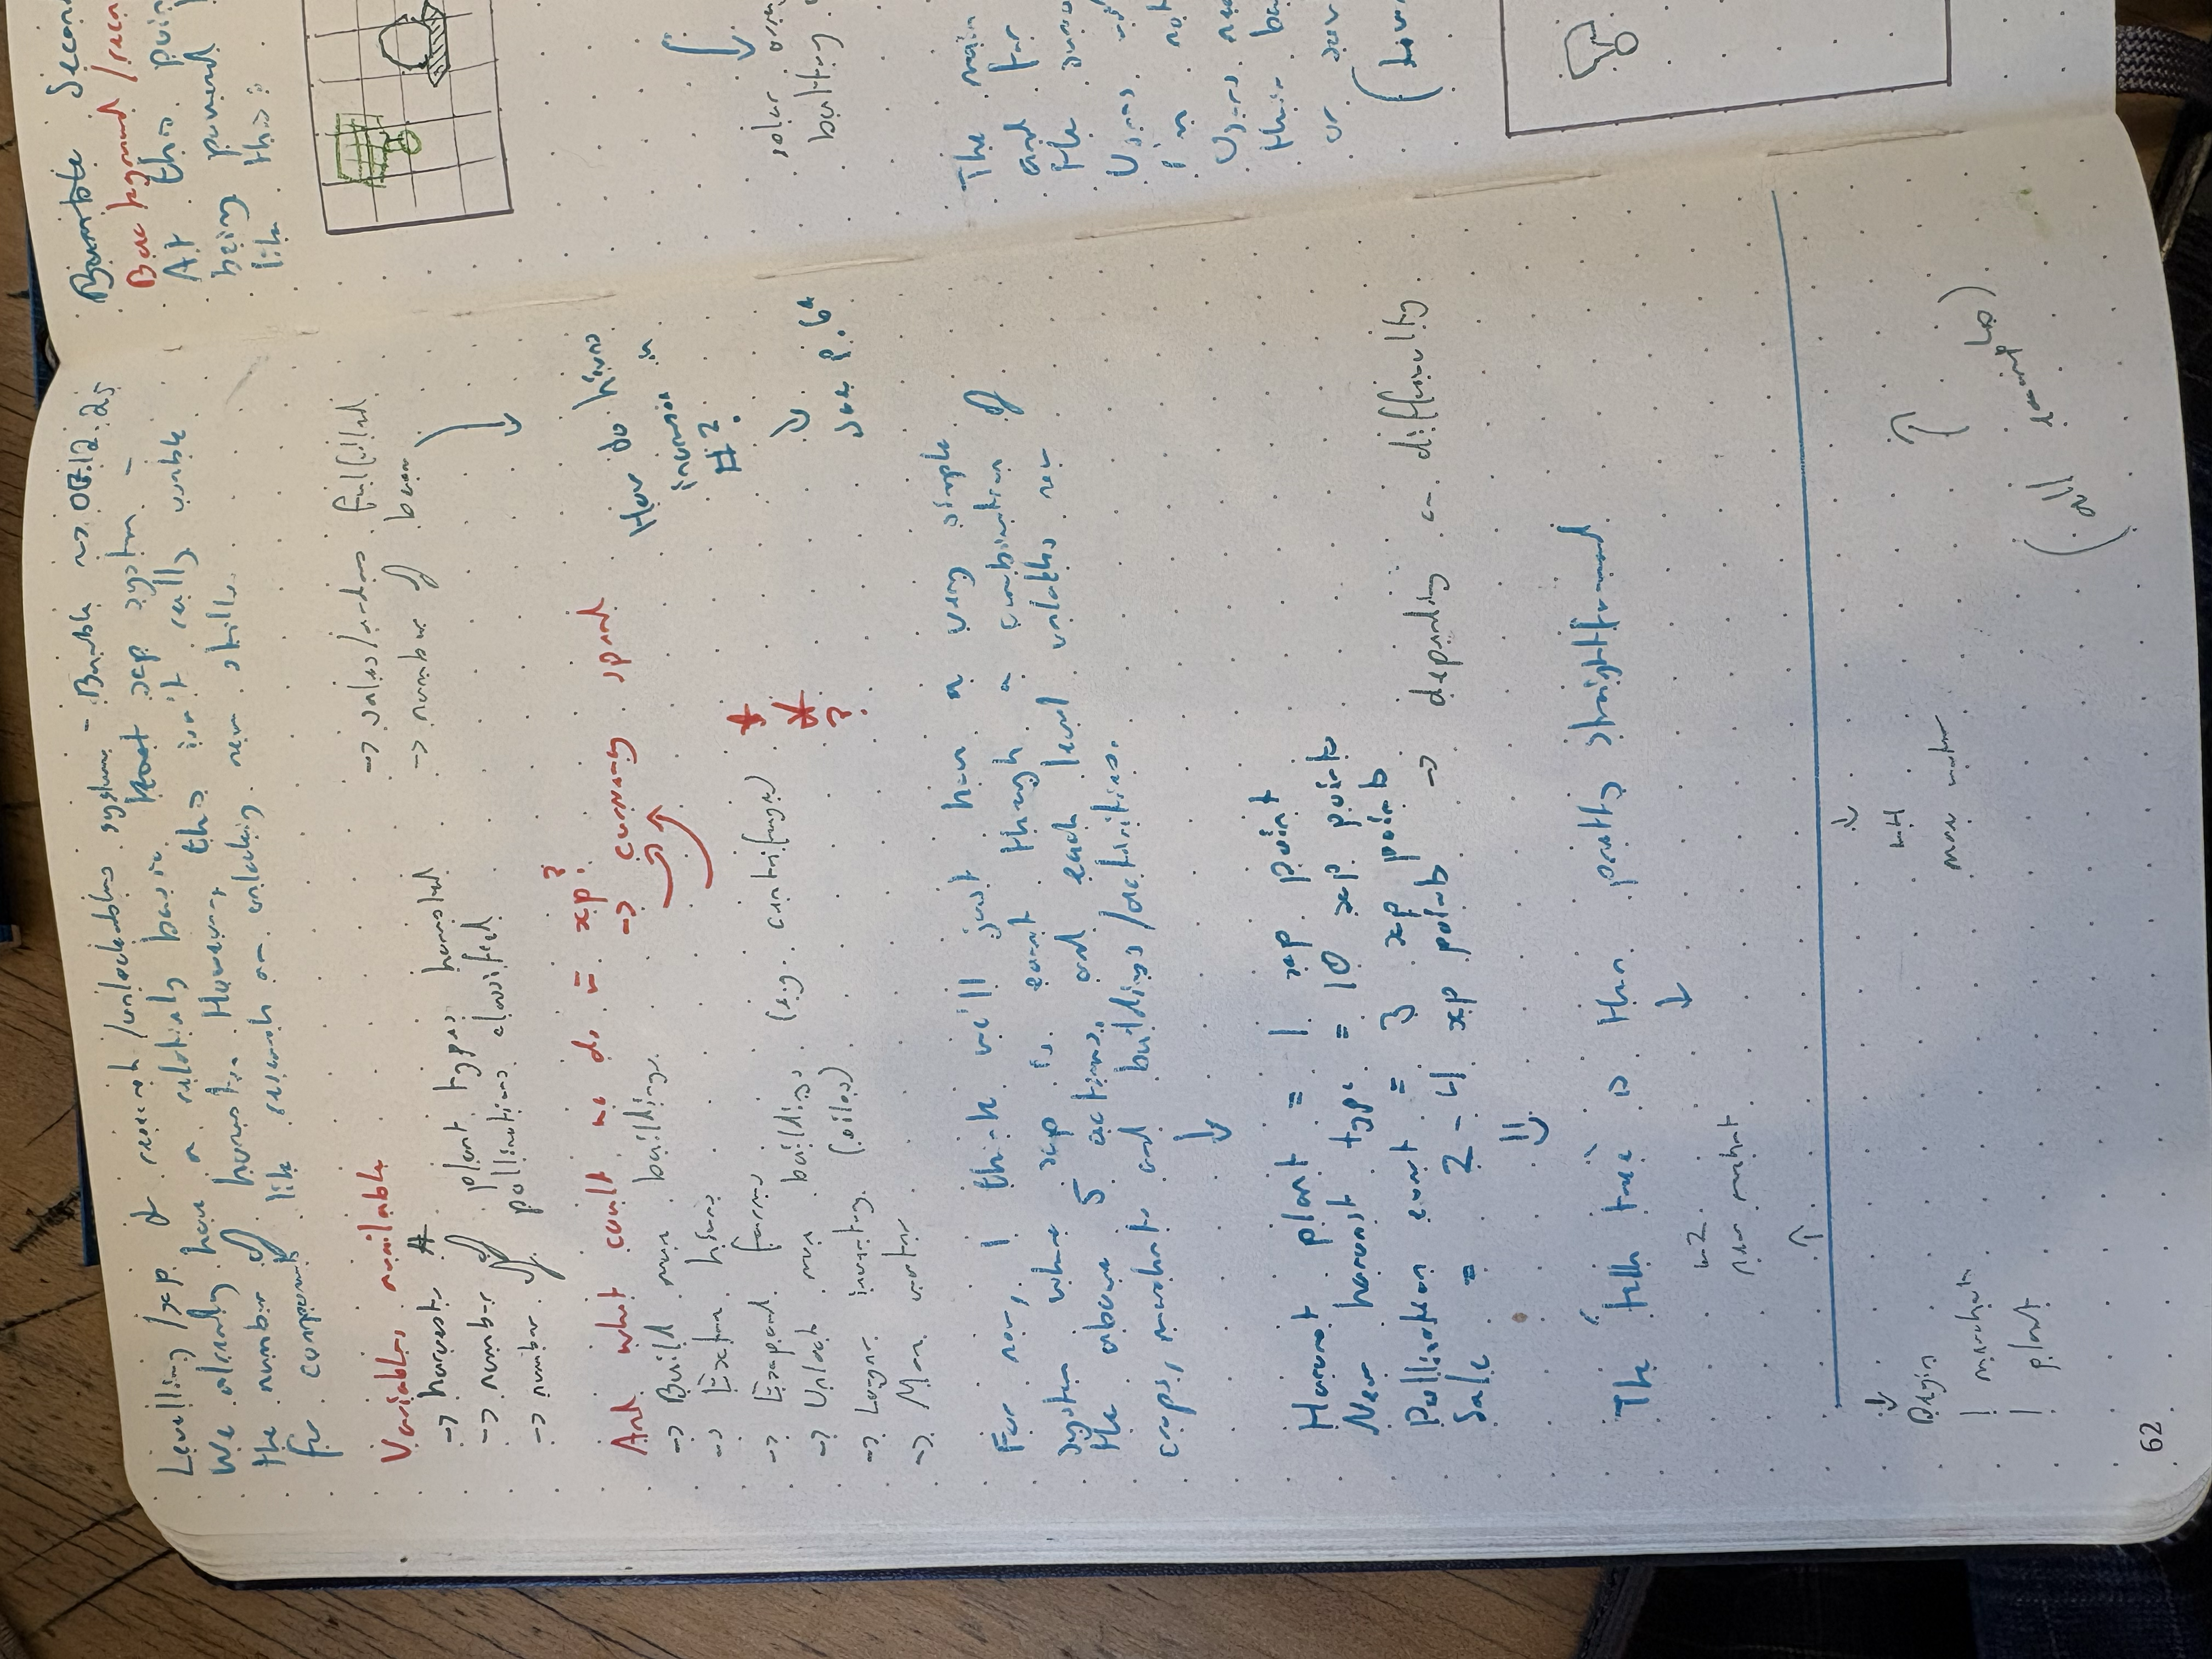 Levelling/xp & research/unlockables system - Bumble ~> 07.12.25
We already have a relatively basic xp system -
the number of harvests. However, this isn't really usable
for components like research or unlocking new skills.
Variables available
-> harvests #
-> number of plant types harvested
-> number of pollinations classified
-> sales/orders fulfilled
-> number of bees
And what could we do = xp?
-> currency spend
-> Build new buildings
-> Extra hives
-> Expand farms (eg. centrifuge)
-> Unlock new buildings
-> Larger inventory (silos)
-> More water
* * ?
How do hives
increase in
#?
see p. 64
For now, I think we'll just have a very simple
system where xp is earnt through a combination of
the above 5 actions, and each level unlocks new
crops, merchants and buildings/activities.
Harvest plant = 1 xp point
New harvest type = 10 xp points
Pollination event = 3 xp points
Sale = 2-4 xp points -> depending on difficulty
The 'tech tree' is then pretty straightforward
lvl 2
new merchant
Begin
1 merchant
1 plant
lvl 4
more water
(all examples)
62
Bumble
Background
At this
being powered
like this:
solar
The main
and for
the
in
their
or